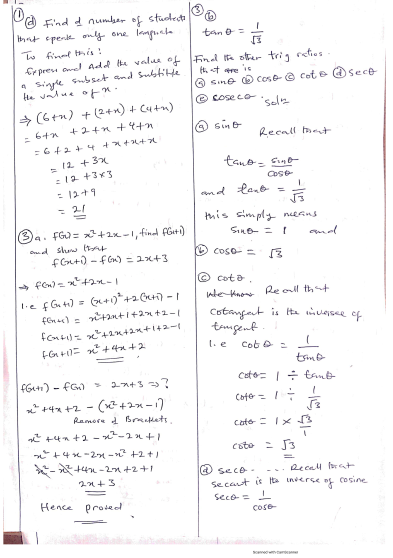 ① (d) Find d number of students
that speak only one language
To find this:
Express and Add the value of
a single subset and subtitute
the value of x.
⇒ (6+x) + (2+x) + (4+x)
= 6+x + 2+x + 4+x
= 6+2+4 +x+x+x
= 12 + 3x
= 12 + 3×3
= 12+9
= 21
③ a. f(x) = x²+2x-1, find f(x+1)
and show that
f(x+1) - f(x) = 2x+3
⇒ f(x) = x²+2x-1
i.e f(x+1) = (x+1)²+2(x+1)-1
f(x+1) = x²+2x+1+2x+2-1
f(x+1) = x²+2x+2x+1+2-1
f(x+1) = x²+4x+2
f(x+1) - f(x) = 2x+3 ⇒ ?
x²+4x+2 - (x²+2x-1)
Remove d Brackets.
x²+4x+2-x²-2x+1
x²+4x-2x-x²+2+1
x²-x²+4x-2x+2+1
2x+3
Hence proved
③ (b)
tanθ = 1/√3
Find the other trig ratios.
that is
ⓐ sinθ ⓑ cosθ ⓒ cotθ ⓓ secθ
ⓔ cosecθ. soln
ⓐ sinθ
Recall that
tanθ = sinθ/cosθ
and tanθ = 1/√3
this simply means
sinθ = 1 and
ⓑ cosθ = √3
ⓒ cotθ.
Recall that
cotangent is the inverse of
tangent.
i.e cotθ = 1/tanθ
cotθ = 1 ÷ tanθ
cotθ = 1 ÷ 1/√3
cotθ = 1 × √3/1
cotθ = √3
ⓓ secθ. ... Recall that
secant is the inverse of cosine
secθ = 1/cosθ
Scanned with CamScanner